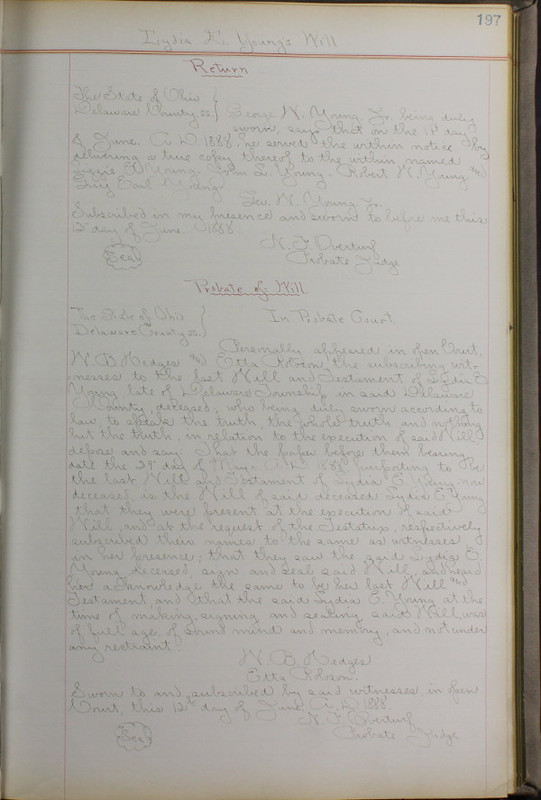 197
Lydia E. Young's Will
Return
The State of Ohio
Delaware County, ss. George W. Young Jr. being duly
sworn, says that on the 1st day
of June. A.D. 1888, he served the within notice by
delivering a true copy thereof to the within named
D Young. L. Young. Robert W. Young and
Earl Young
Geo. W. Young Jr.
Subscribed in my presence and sworn to before me this
12th day of June 1888
N. F. Overturf
Seal
Probate Judge
Probate of Will
The State of Ohio
Delaware County, ss. In Probate Court
Personally appeared in open Court,
W. B. Hedges and Etta Robson, the subscribing wit-
nesses to the last Will and Testament of Lydia E
Young late of Delaware Township in said Delaware
County, deceased; who being duly sworn according to
law to speak the truth, the whole truth and nothing
but the truth, in relation to the execution of said Will
depose and say: That the paper before them bearing
date the day of May A.D. 1888, purporting to be
the last Will and Testament of Lydia E. Young now
deceased, is the Will of said deceased Lydia E Young
that they were present at the execution of said
Will, and at the request of the Testatrix, respectively
subscribed their names to the same as witnesses
in her presence; that they saw the said Lydia E.
Young, deceased, sign and seal said Will, and heard
her acknowledge the same to be her last Will and
Testament, and that the said Lydia E. Young at the
time of making, signing and sealing said Will, was
of full age, of sound mind and memory, and not under
any restraint.
W. B. Hedges
Etta Robson.
Sworn to and subscribed by said witnesses, in open
Court, this 12th day of June A.D. 1888.
N. F. Overturf
Seal
Probate Judge